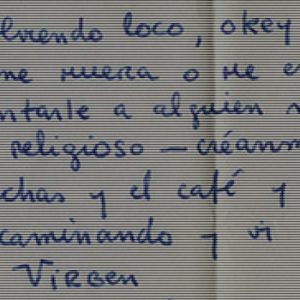 lviendo loco, okey
me muera o me e
ntarle a alguien
religioso — créanm
chas y el café y
caminando y vi
Virgen